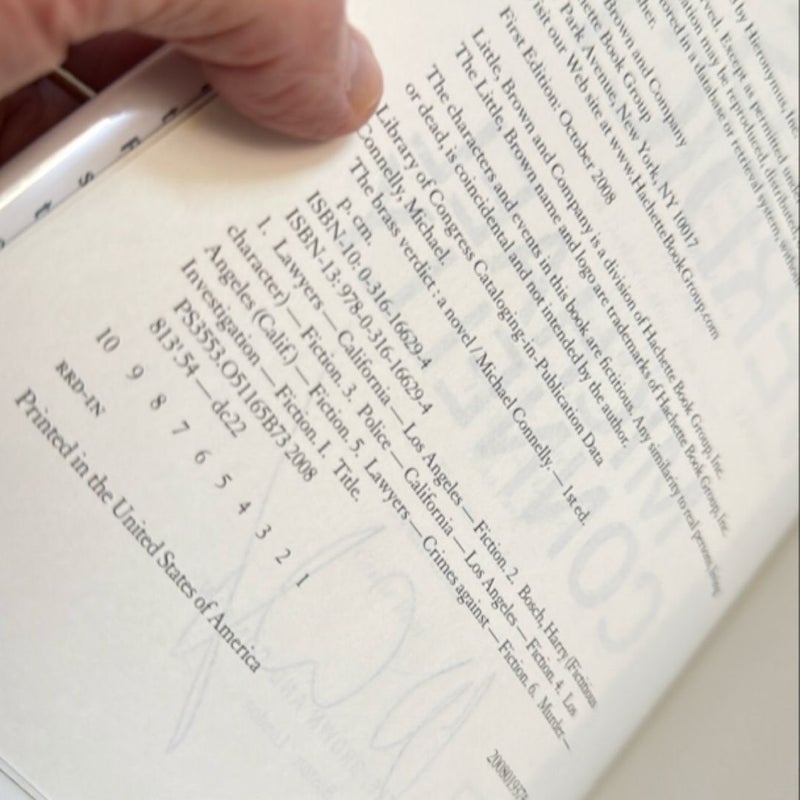 by Hieronymus, Inc.
Except as permitted under
may be reproduced, distributed
stored in a database or retrieval system, without
Brown and Company
Book Group
Park Avenue, New York, NY 10017
visit our Web site at www.HachetteBookGroup.com
First Edition: October 2008
Little, Brown and Company is a division of Hachette Book Group, Inc.
The Little, Brown name and logo are trademarks of Hachette Book Group, Inc.
The characters and events in this book are fictitious. Any similarity to real persons, living
or dead, is coincidental and not intended by the author.
Library of Congress Cataloging-in-Publication Data
Connelly, Michael.
The brass verdict : a novel / Michael Connelly. — 1st ed.
p. cm.
ISBN-10: 0-316-16629-4
ISBN-13: 978-0-316-16629-4
1. Lawyers — California — Los Angeles — Fiction. 2. Bosch, Harry (Fictitious
character) — Fiction. 3. Police — California — Los Angeles — Fiction. 4. Los
Angeles (Calif.) — Fiction. 5. Lawyers — Crimes against — Fiction. 6. Murder—
Investigation — Fiction. I. Title.
PS3553.O51165B73 2008
813'.54 — dc22
10 9 8 7 6 5 4 3 2 1
RRD-IN
Printed in the United States of America